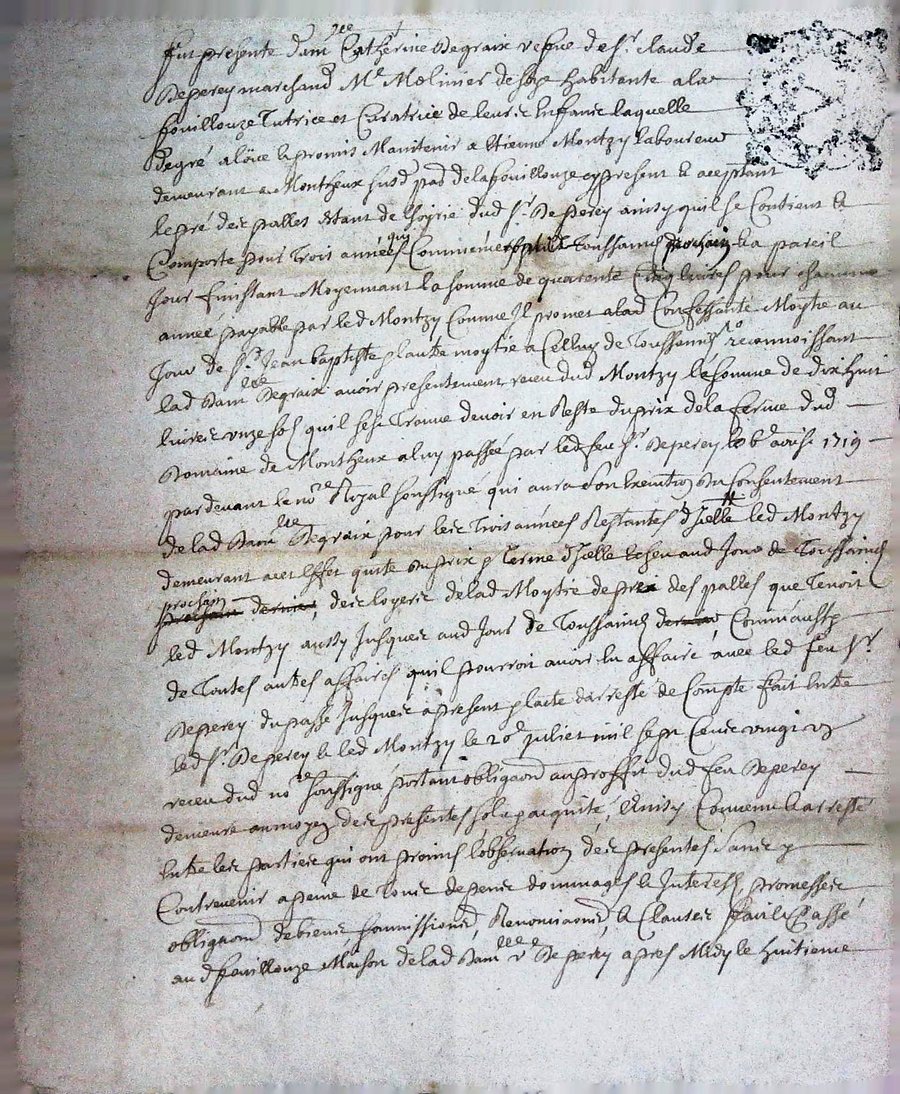 fut presente dam.lle Catherine Degraix vefue de Sr. claude
Deperey marchand Me Molinier de habitante a la
fouillouze Tutrice et Curatrice de leurs Enfans laquelle
de gré a loüe & promis Maintenir a Etienne Montzy laboureur
demeurant a Montheux susd. par. de la fouillouze cy present & aceptant
le pré des palles Estant de l'hoyrie dud Sr. Deperey ainsy quil se Contient &
Comporte pour Trois années qui Commenceront Toussaints prochain & a pareil
Jour finissant Moyennant la somme de quarente Cinq livres pour chacunne
année payable par led Montzy Comme Jl promet a lad Confessante Moytie au
Jour de St. Jean baptiste & lautre moytie a Celluy de Toussaints reconnoissant
lad Dam.lle Degraix avoir presentement receu dud Montzy le somme de dix huit
livres unze sols quil sest Trouve devoir en Reste du prix de la ferme dud
Domaine de Montheux a luy passée par led feu Sr. Deperey le 6e avril 1719
par devant le no.re Royal soussigné qui aura son Execution Du Consentement
de lad Dam.lle Degraix pour les Trois années Restantes d'Jcelle led Montzy
demeurant a cet Effet quitte du prix & Terme d'Jcelle Echeu aud Jour de Toussaints
prochain des loyers de lad Moytie de pré des palles que Tenoit
led Montzy aussy Jusques aud Jour de Toussaints Comm'aussy
de Toutes autres affaires quil pourroit avoir Eu affaire avec led feu Sr.
Deperey du passé Jusques a present & lacte darresté de Compte fait Entre
led Sr. Deperey & led Montzy le 20e Juillet mil sept Cens vingt
receu dud no.re soussigné portant obligaon au proffit dud feu Deperey
demeure au moyen des presentes sol. & acquité, Ainsy Convenu & arresté
Entre les parties qui ont promis l'observation des presentes sans y
Contrevenir a peine de Tous depens dommages & Interests, promesses
obligaons de biens soumissions, Renonciaons, & Clauses fait & Passé
aud fouillouze Maison de lad Dam.lle ve Deperey apres Midy le huitieme